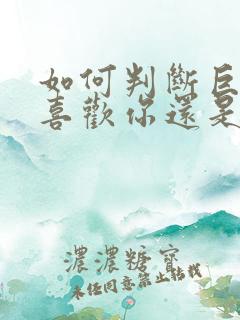 如何判斷巨
喜歡你還是
濃濃糖寶
未任同意禁止轉載